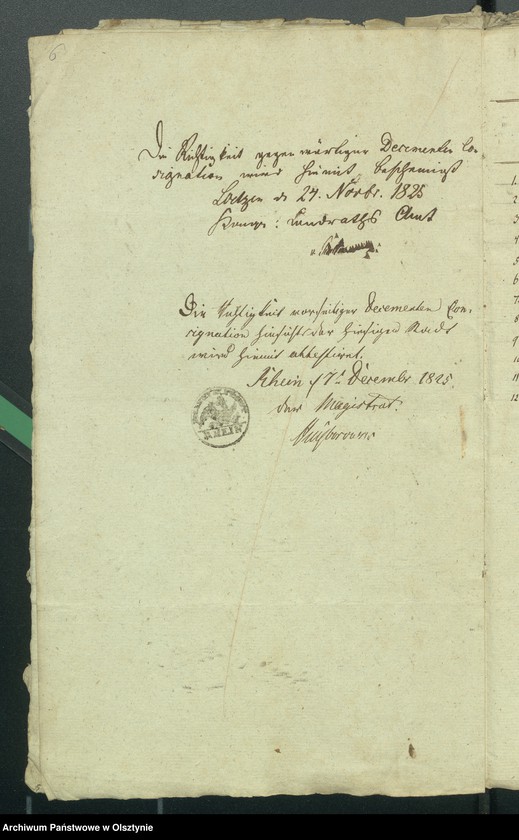 6
Die Richtigkeit gegenwärtiger Decementen Con-
signation wird hiemit bescheinigt
Loetzen d 24. Novbr. 1825
Königl: Landraths Amt
Die Richtigkeit vorseitiger Decementen Con-
signation hinsichts der hiesigen Stadt
wird hiemit attestiret.
Rhein d 7t Decembr 1825.
der Magistrat.
RHEIN
1.
2
3
4
5
6
7
8
9
10
11
12
Archiwum Państwowe w Olsztynie